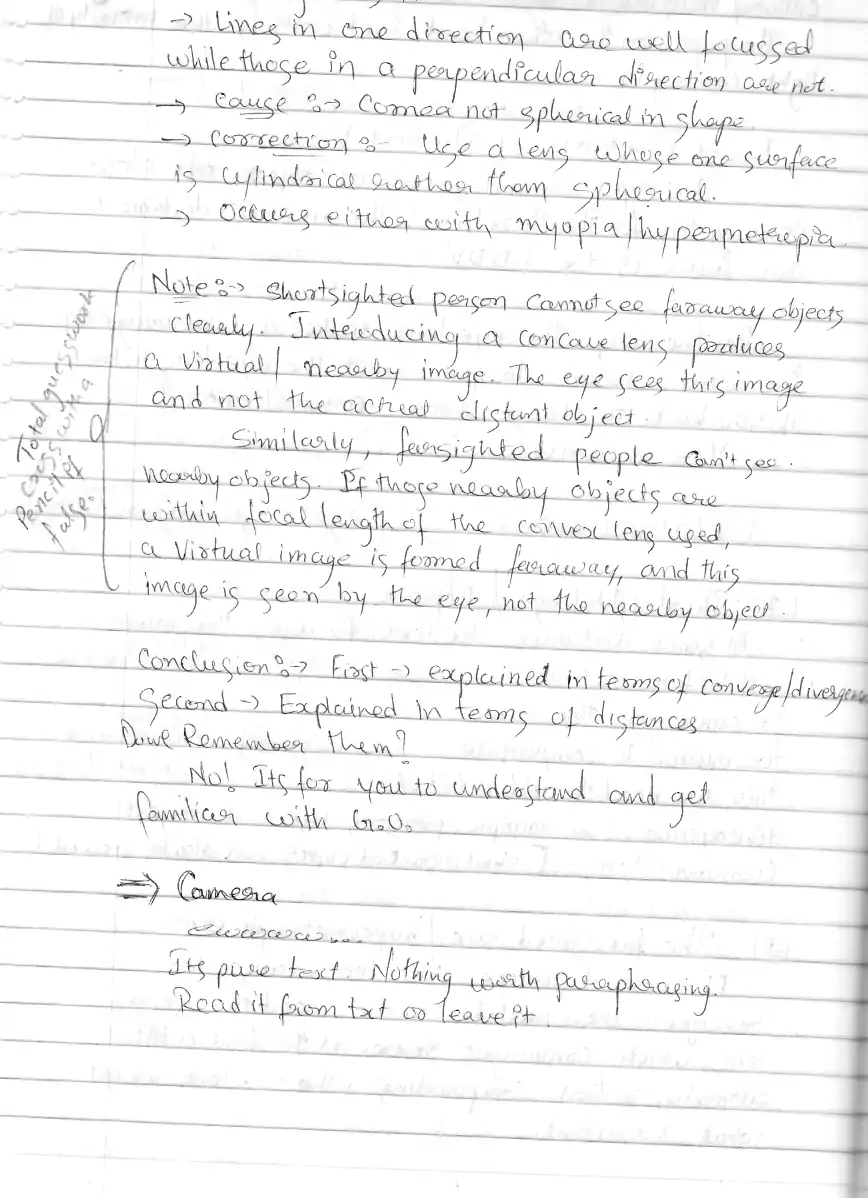 → Lines in one direction are well focussed
while those in a perpendicular direction are not.
→ Cause :→ Cornea not spherical in shape
→ Correction :- Use a lens whose one surface
is cylindrical rather than spherical.
→ Occurs either with myopia/hypermetropia.
Note :→ Shortsighted person cannot see faraway objects
clearly. Introducing a concave lens produces
a virtual/ nearby image. The eye sees this image
and not the actual distant object.
Similarly, farsighted people can't see.
nearby objects. If those nearby objects are
within focal length of the convex lens used,
a virtual image is formed faraway, and this
image is seen by the eye, not the nearby object.
Total guesswork
Cross with a
Pencil if
false.
Conclusion :→ First → explained in terms of converge/divergence
Second → Explained in terms of distances
Do we Remember them?
No! Its for you to understand and get
familiar with G.O.
⇒ Camera
Its pure text. Nothing worth paraphrasing.
Read it from txt or leave it.